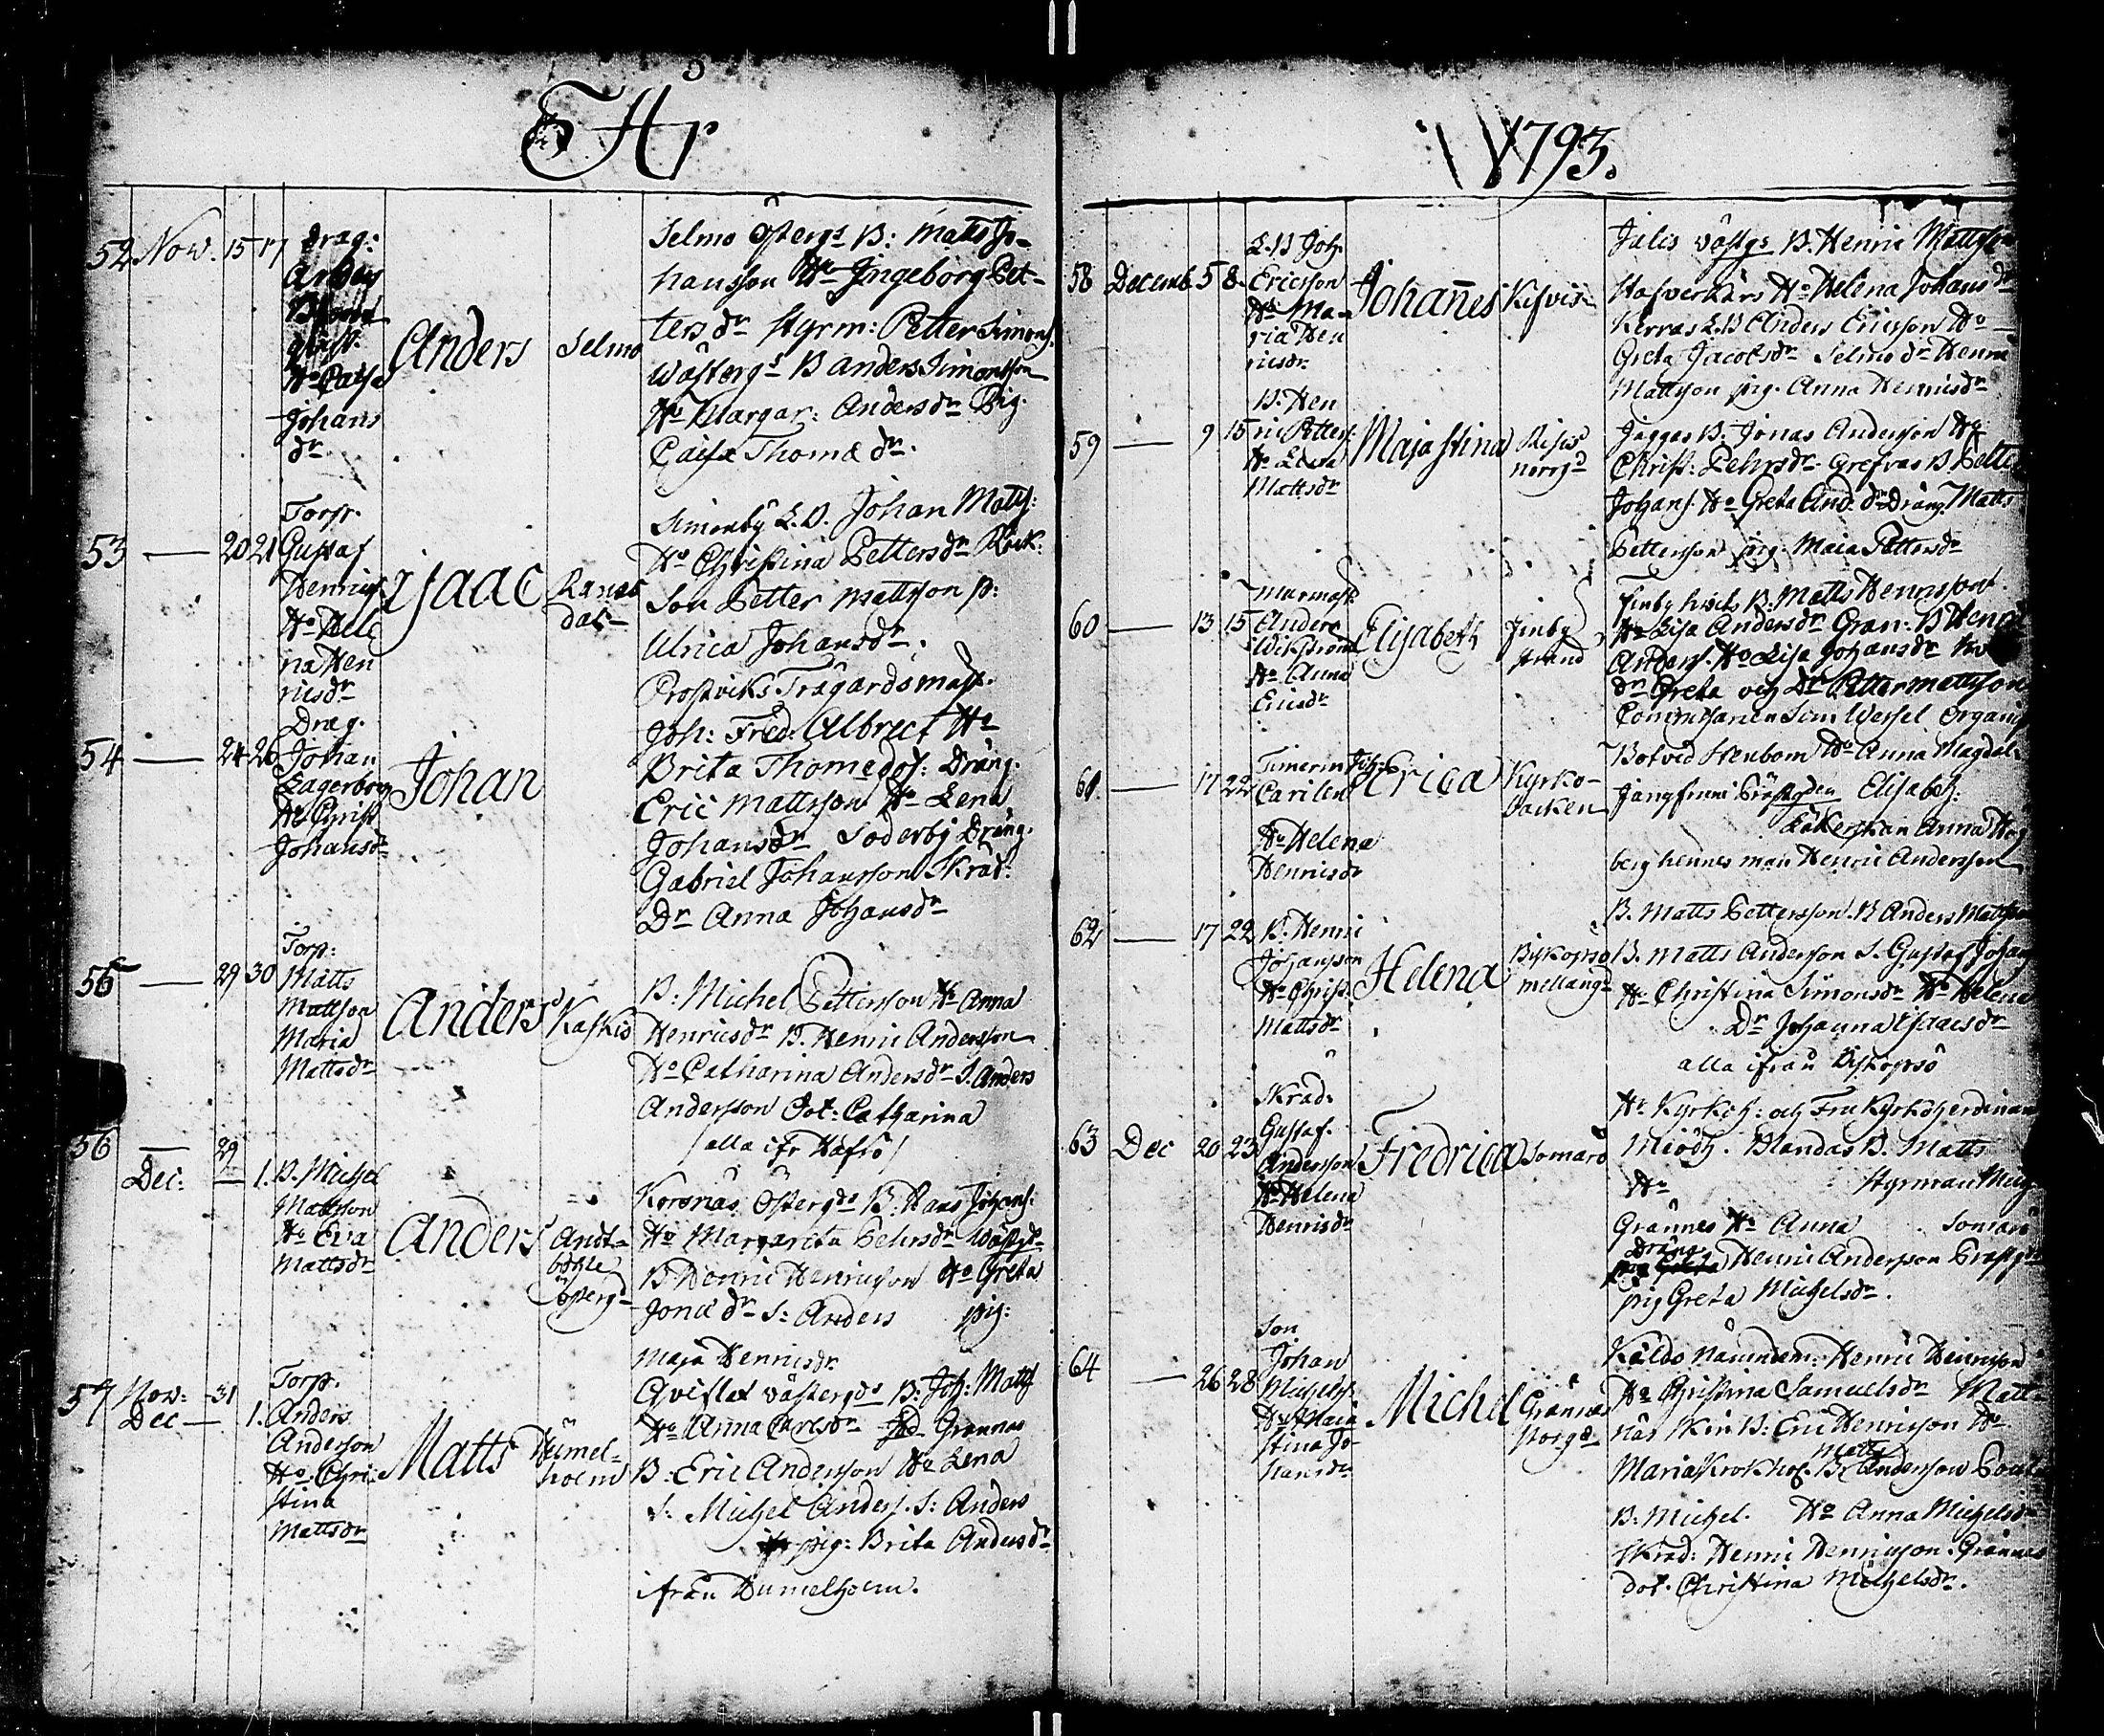 Åhr
52 Nov. 15 17
drag:
Anders
Hu Caisa
Johans
dr
Anders
Selmo
Selmo Österg: B: Matts Jo-
hansson Hu Ingeborg Pet-
ters dr Styrm: Petter Simons.
Wästerg: B Anders Simonsson
Hu Margar: Anders dr Pig.
Caisa Thomæ dr.
53 — 20 21
Torp.
Gustaf
Henrics.
Hu Hele
na Hen
ricsdr
Isaac
Simonby L.B. Johan Matts:
Hu Christina Pettersdr Rusk:
Son Petter Mattsson p:
Ulrica Johansdr.
54 — 24 26
Drag.
Johan
Lagerborg
Hu Christ
Johansdr
Johan
Prostviks Trägårdsmäst.
Joh: Fred. Albrect Hu
Brita Thomedot: Dräng.
Eric Mattsson Hu Lena
Johansdr Söderby Dräng.
Gabriel Johansson Skräd:
Dr Anna Johansdr
55 — 29 30
Torp:
Matts
Mattson
Maria
Mattsdr
Anders
Kaskis
B: Michel Pettersson Hu Anna
Henricsdr B. Henric Andersson
Hu Catharina Andersdr S. Anders
Andersson Dot: Catharina
/alla ifr Hafsö/
56 — 29
Dec: — 1.
B. Michel
Mattson
Hu Eva
Mattsdr
Anders
Andt-
böhle
österg
Korsnäs Östergds B. Hans Johans:
Hu Margareta Pehrsdr Wästgd
B. Henric Henricsson Hu Greta
Jonæ dr S: Anders pig:
Maja Henricsdr
57 Nov: 31
Dec — 1.
Torp.
Anders
Anderson
Hu Chri-
stina
Mattsdr
Matts
Himel-
holm
Qvislax wästergds B: Joh: Matts
Hu Anna Carlsdr Grannas
B: Eric Anderson Hu Lena
S. Michel Anders. S: Anders
pig: Brita Andersdr
ifrån Humelholm.
1793.
58 Decemb 5 8
L.B Joh.
Ericsson
Hu Ma-
ria Hen
ricsdr
Johannes
Kifvis
Jälis västgs B. Henric Mattss
Hafverkärs Hu Helena Johansdr
Kerras L.B Anders Ericsson Hu
Greta Jacobsdr Selmo dr Henric
Mattsson pig. Anna Henricsdr
59 — 9 15
B. Hen
ric Petters.
Hu Lena
Mattsdr
Maja Stina
Risis
norrgd
Jäggas B. Jonas Anderson Hu
Christ: Pehrsdr. Grefvas B Pette
Johans. Hu Greta And. dr Dräng. Matts
Petterson pig. Maia Pettersdr
60 — 13 15
Murmäst
Anders
Wikström
Hu Anna
Ericsdr
Elisabeth
Finby
strand
Finby B: Matts Henricsson
Hu Lisa Andersdr Gran: B Henric
Anders. Hu Lisa Johansdr
dr Greta och Dr Petter Mattson
61 — 17 22
Timerm
Carilen
Hu Helena
Henricsdr
Erica
Kyrko-
backen
Comissarien Sim. Wessel Organis
Botvid Stenbom Hu Anna Magdal:
Jungfruni Elisabeh:
Anna
berg hennes man Henric Andersson
62 — 17 22
B. Henric
Johansson
Hu Christ.
Mattsdr
Helena
Biskopsö
mellangd
B. Matts Pettersson. B Anders Mattson
B. Matts Anderson S. Gustaf Johans
Hu Christina Simonsdr Hu Helena
Dr Johanna Isaacsdr
alla ifrån Biskopsö
63 Dec 20 23
Skräd:
Gustaf
Anderson
Hu Helena
Henricsdr
Fredrica
Somarö
Hr Kyrkoh: och Fru Kyrkoherdinan
Miödh. Blandas B. Matts
Hu Styrman Mich
Grännes Hu Anna Somarö
Dräng. Henric Anderson Prästg
pig Greta Michelsdr.
64 — 26 28
Son
Johan
Michels.
Hu Maja
Stina Jo-
hansdr
Michel
Grännäs
norgd
Käldo Nämndem: Henric Henricsson
Hu Christina Samuelsdr Matt
näs Skin B: Eric Henricson Hu
Maria Krokhof. B: Matts Anderson
B. Michel. Hu Anna Michelsdr
Skräd: Henric Henricsson. Grännes
dot. Christina Michelsdr.